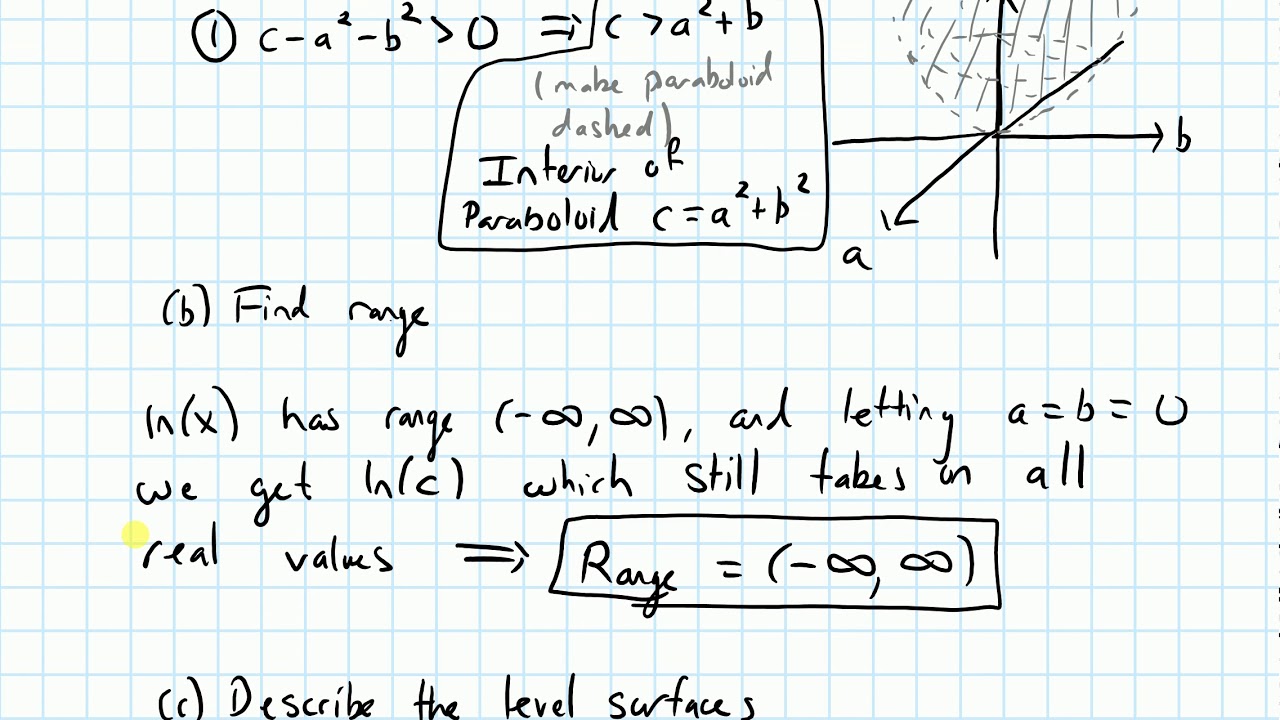 ① c-a²-b²>0 ⇒ c>a²+b
(make paraboloid
dashed)
Interior of
Paraboloid c=a²+b²
b
a
(b) Find range
ln(x) has range (-∞,∞), and letting a=b=0
we get ln(c) which still takes on all
real values ⇒ Range = (-∞,∞)
(c) Describe the level surfaces